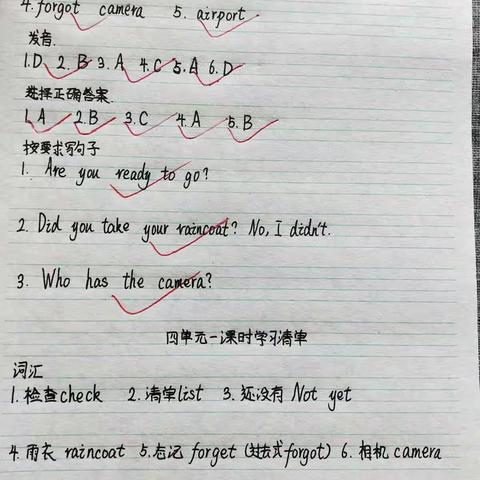 4. forgot camera 5. airport
发音.
1. D 2. B 3. A 4. C 5. A 6. D
选择正确答案.
1. A 2. B 3. C 4. A 5. B
按要求写句子
1. Are you ready to go?
2. Did you take your raincoat? No, I didn't.
3. Who has the camera?
四单元一课时学习清单
词汇
1. 检查check 2. 清单list 3. 还没有 Not yet
4. 雨衣 raincoat 5. 忘记 forget (过去式forgot) 6. 相机 camera